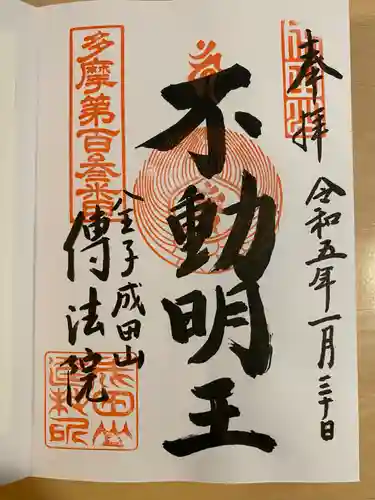 奉拝
令和五年一月三十日
不動明王
多摩第百参番
金子成田山
傳法院